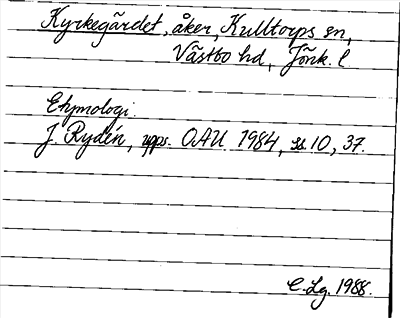 Kyrkegärdet, åker, Kulltorps sn,
Västbo hd, Jönk. l
Etymologi.
J. Rydén, upps. OAU 1984, ss. 10, 37.
C. Lg. 1988.